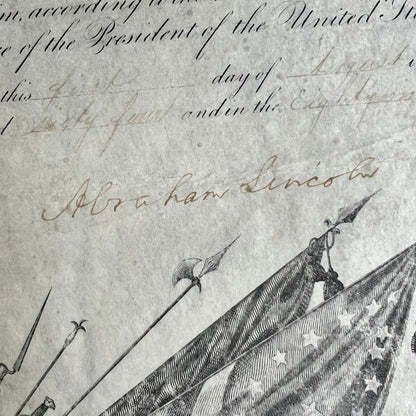 im, according to the
re of the President of the United Sta
this first day of August
d sixty four and in the Eighty nin
Abraham Lincoln